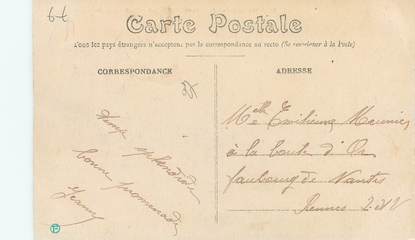 Carte Postale
Tous les pays étrangers n'acceptent pas la correspondance au recto (Se renseigner à la Poste)
CORRESPONDANCE
ADRESSE
temps splendide
bonne promenade
Jeanne
Melle Emilienne Meunier
à la boule d'Or
faubourg de Nantes
Rennes I-et-V